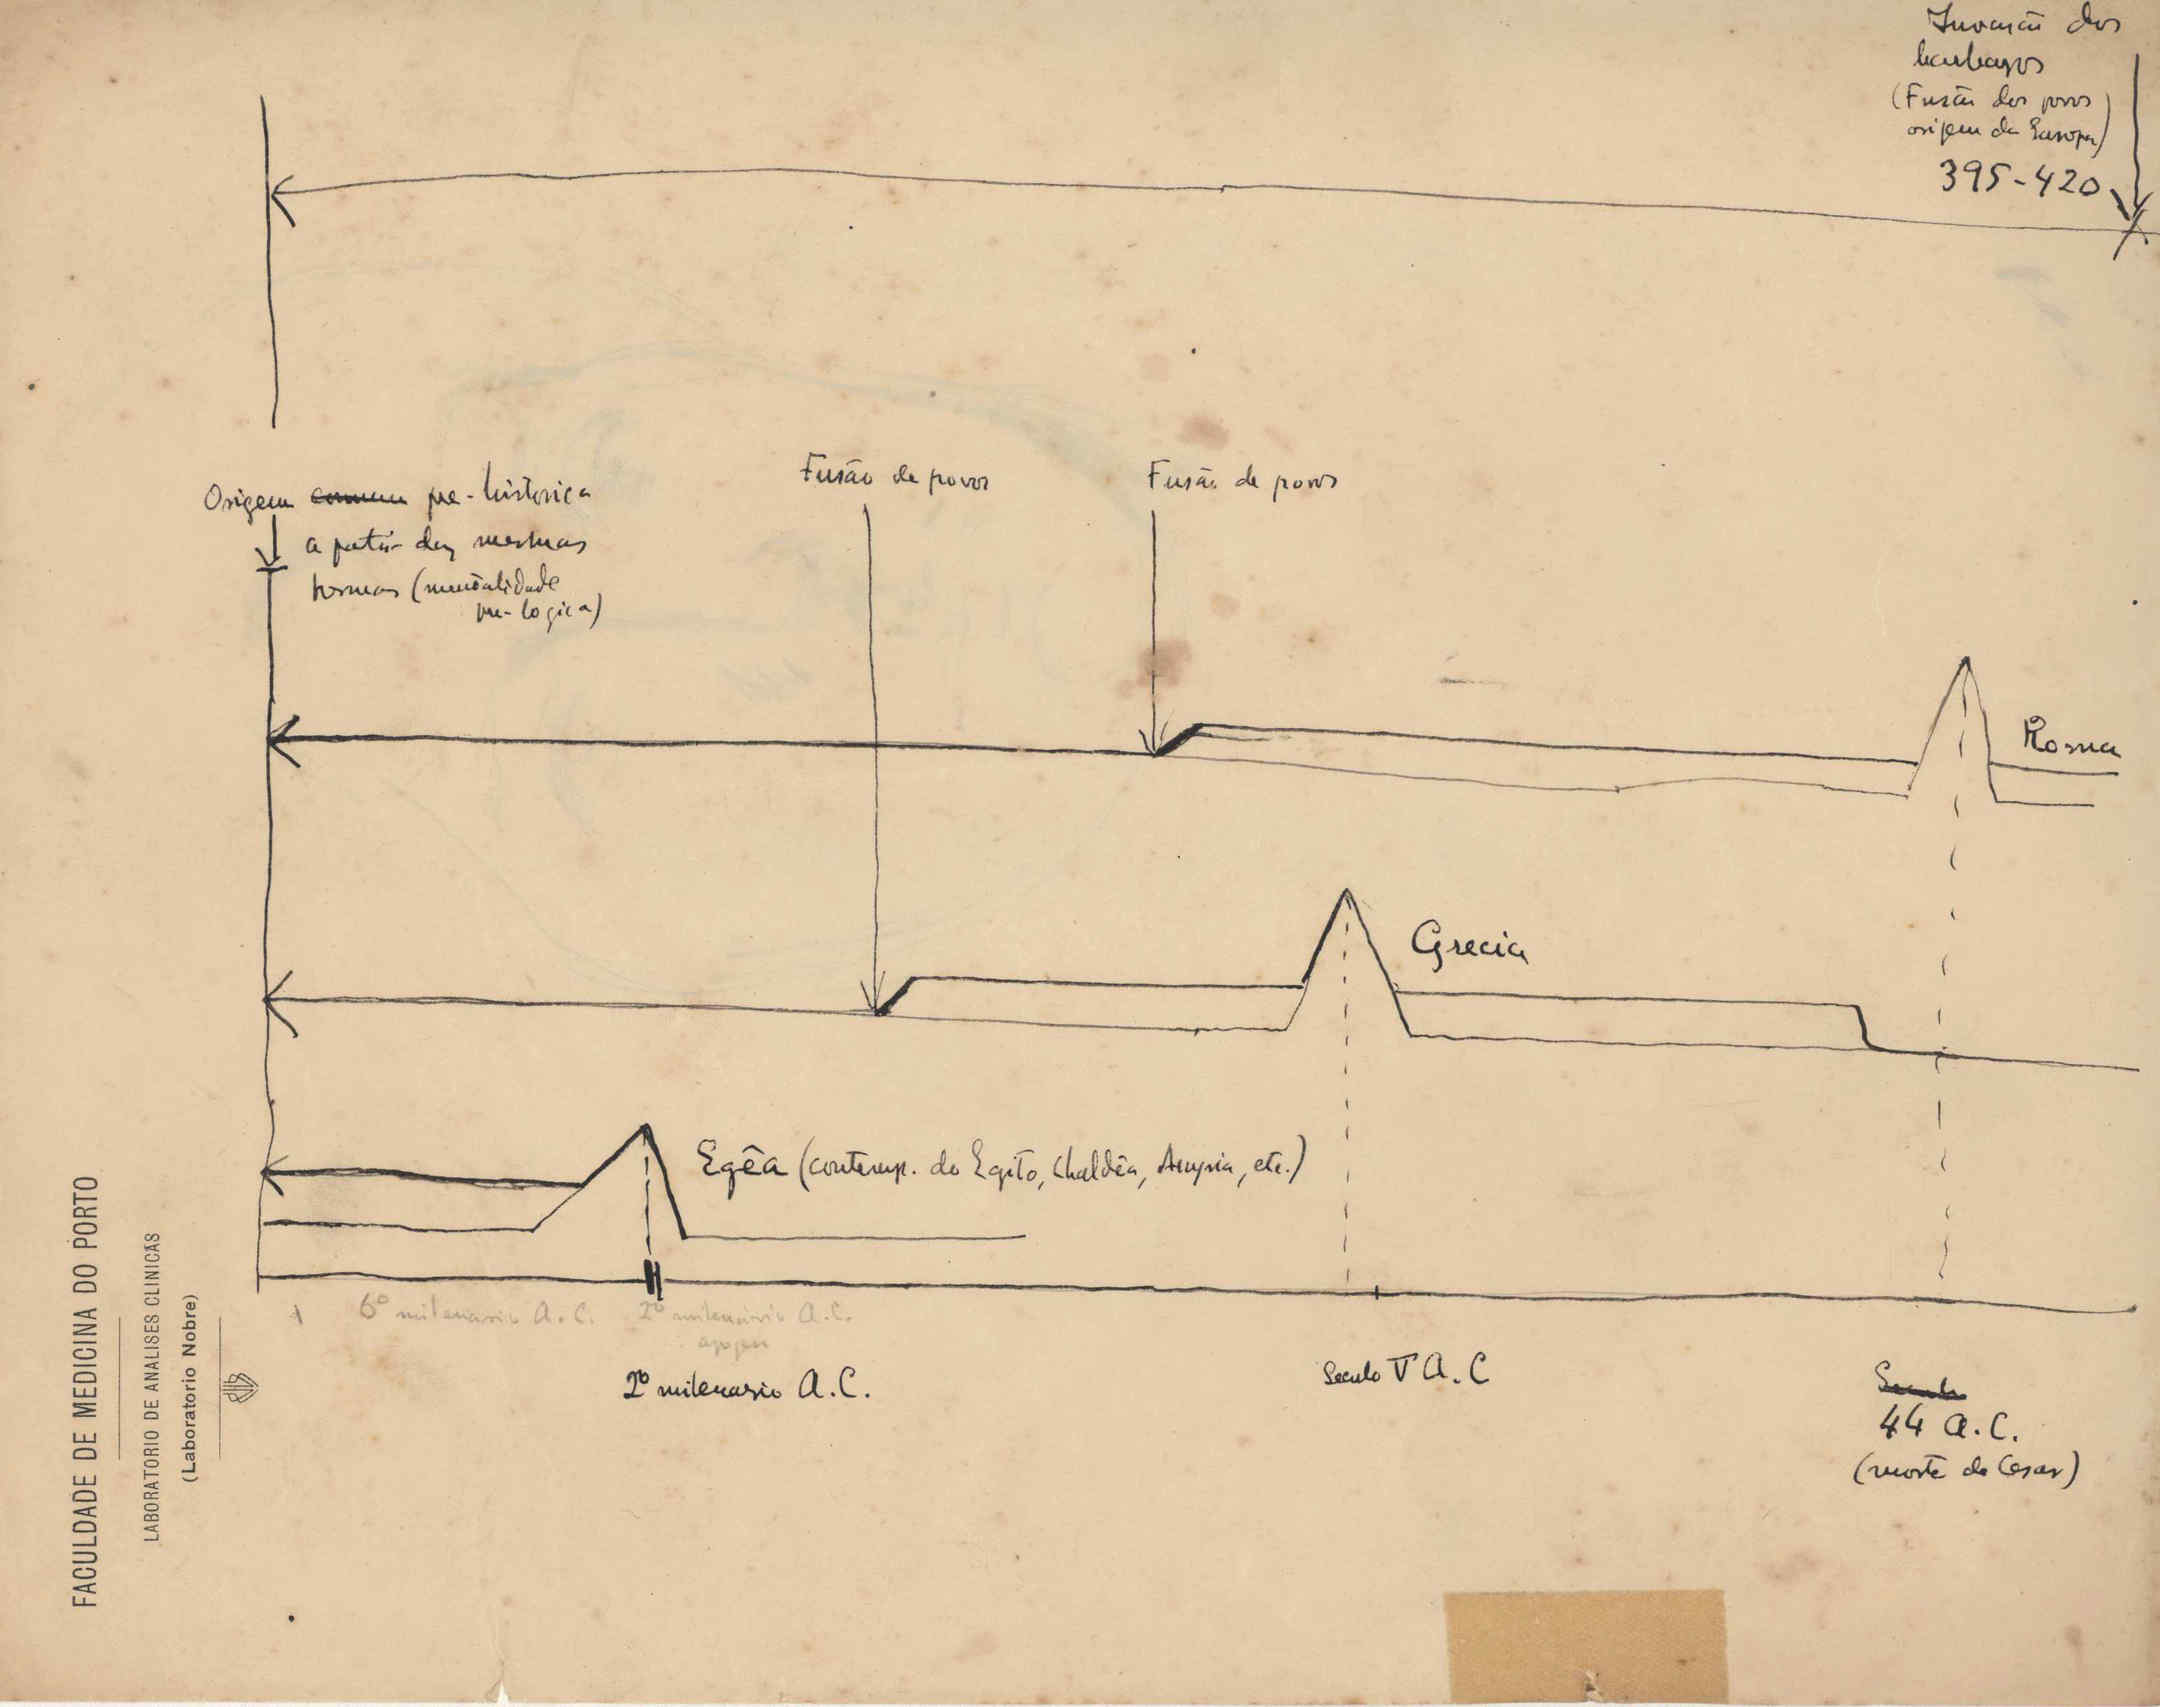 Invasão dos
barbaros
(Fusão dos povos
origem da Europa)
395-420
Origem commum pre-historica
a partir das mesmas
formas (mentalidade
pre-logica)
Fusão de povos
Fusão de povos
Roma
Grecia
Egêa (contemp. do Egito, Chaldêa, Assyria, etc.)
6º milenario A.C.
2º milenario A.C.
apogeu
2º milenario A.C.
Seculo V A.C
Seculo
44 A.C.
(morte de Cesar)
FACULDADE DE MEDICINA DO PORTO
LABORATORIO DE ANALISES CLINICAS
(Laboratorio Nobre)